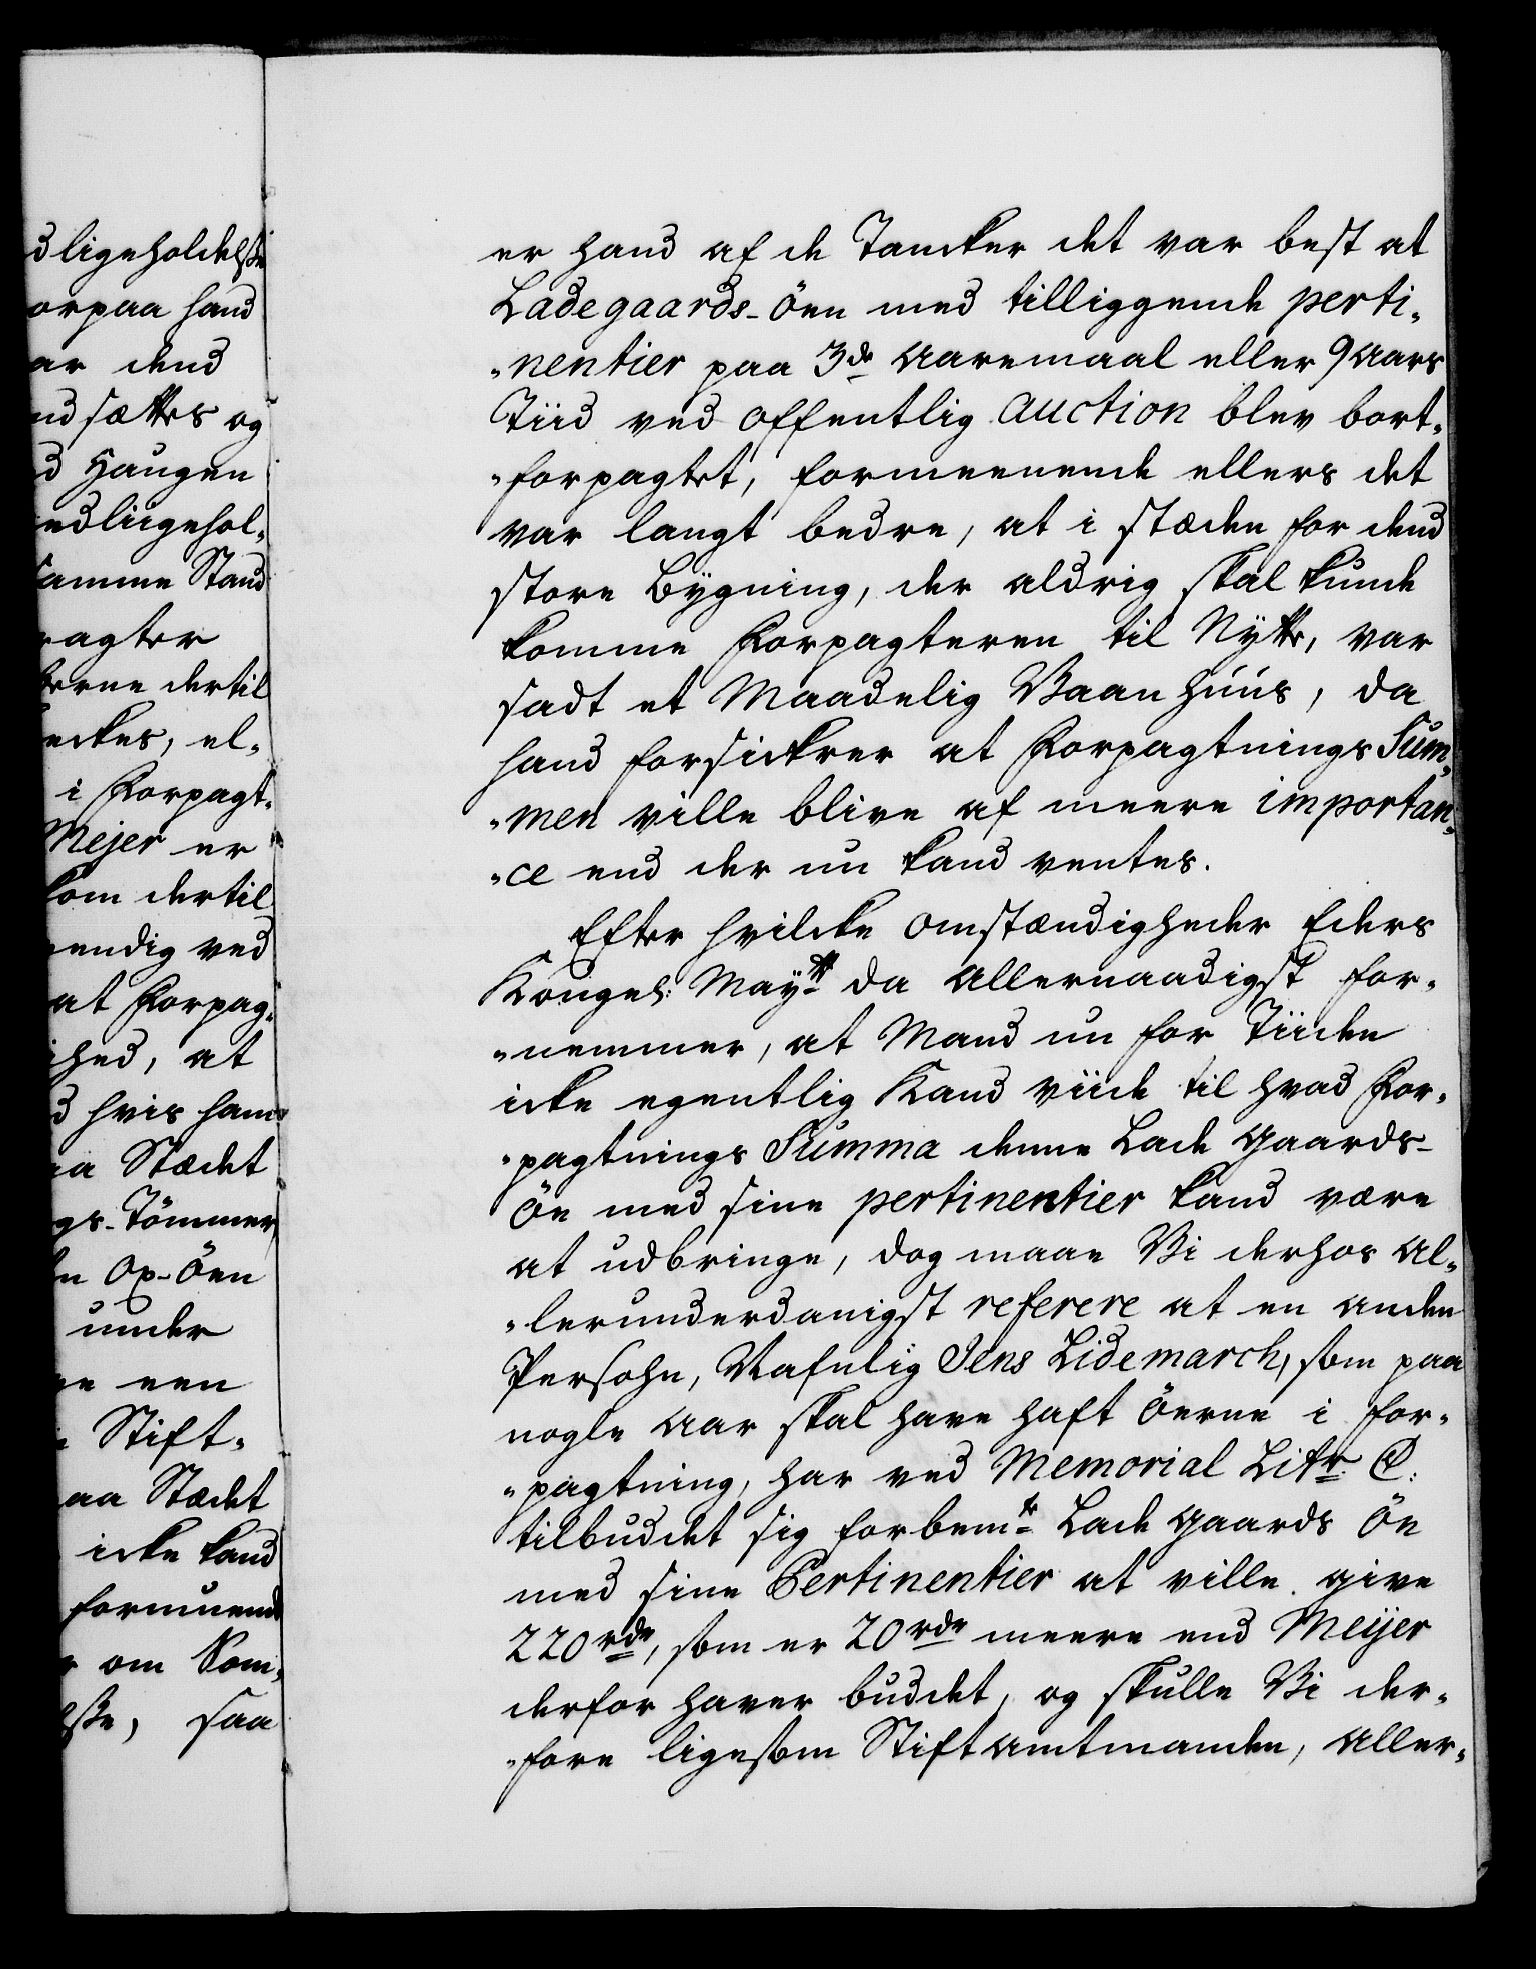 dligeholdelsse
orpaa hand
ar dend
nd sættes og
d Haugen
edliigehol-
samme Stand
ragter
terne dertil
eckes, el-
i Forpagt-
Mejer er
kom dertil
endig ved
at Forpag-
ihed, at
d hvis hans
aa Stædet
gs-Tömmer
n Ox-Öen
under
een
Stift-
aa Stædet
icke kand
formeenend
om Som-
lsse, saa
er hand af de Tancker det var best at
Ladegaards-Öen med tilliggende perti-
-nentier paa 3de Aaremaal eller 9 Aars
Tiid ved offentlig Auction blev bort-
-forpagtet, formeenende ellers det
var langt bedre, at i stæden for dend
store Bÿgning, der aldrig skal kunde
komme Forpagteren til Nÿtte, var
sadt et Maadelig Vaanhuus, da
hand forsickrer at Forpagtnings Sum-
-men ville blive af meere importan-
-ce end der nu kand ventes.
Efter hvilcke omstændigheder Eders
Kongel: Mayᵗᵗ da Allernaadigst for-
-nemmer, at Mand nu for Tiiden
icke egentlig Kand viide til hvad For-
-pagtnings Summa denne Lade Gaards-
Öe med sine pertinentier kand være
at udbringe, dog maae Vi derhos Al-
-lerunderdanigst referere at en anden
Persohn, Nafnlig Jens Lidemarch, som paa
nogle Aar skal have haft Öerne i for-
-pagtning, har ved Memorial Litr: C:
tilbudet sig forbemte Lade Gaards Öe
med sine Pertinentier at ville give
220 rdr, som er 20 rdr meere end Meijer
derfor haver budet, og skulle Vi der-
-fore ligesom Stiftamtmanden, Aller-